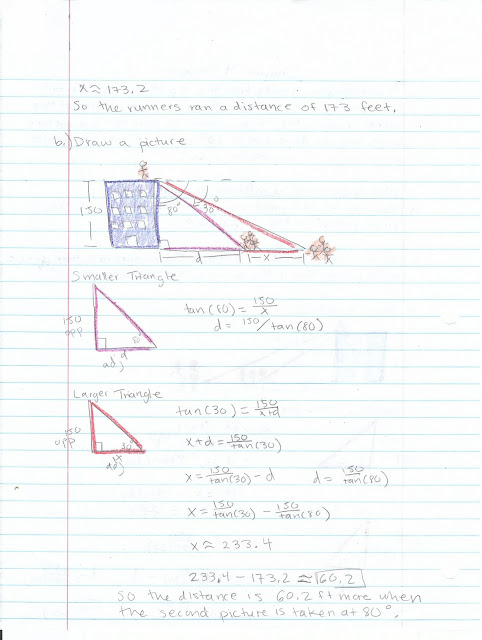 x ≈ 173.2
So the runners ran a distance of 173 feet.
b.) Draw a picture
150
80° 30°
d x
Smaller Triangle
150
opp
80°
d
adj
tan(80) = 150/x
d = 150/tan(80)
Larger Triangle
150
opp
30°
x
adj
tan(30) = 150/x+d
x+d = 150/tan(30)
x = 150/tan(30) - d d = 150/tan(80)
x = 150/tan(30) - 150/tan(80)
x ≈ 233.4
233.4 - 173.2 ≈ 60.2
So the distance is 60.2 ft more when
the second picture is taken at 80°.